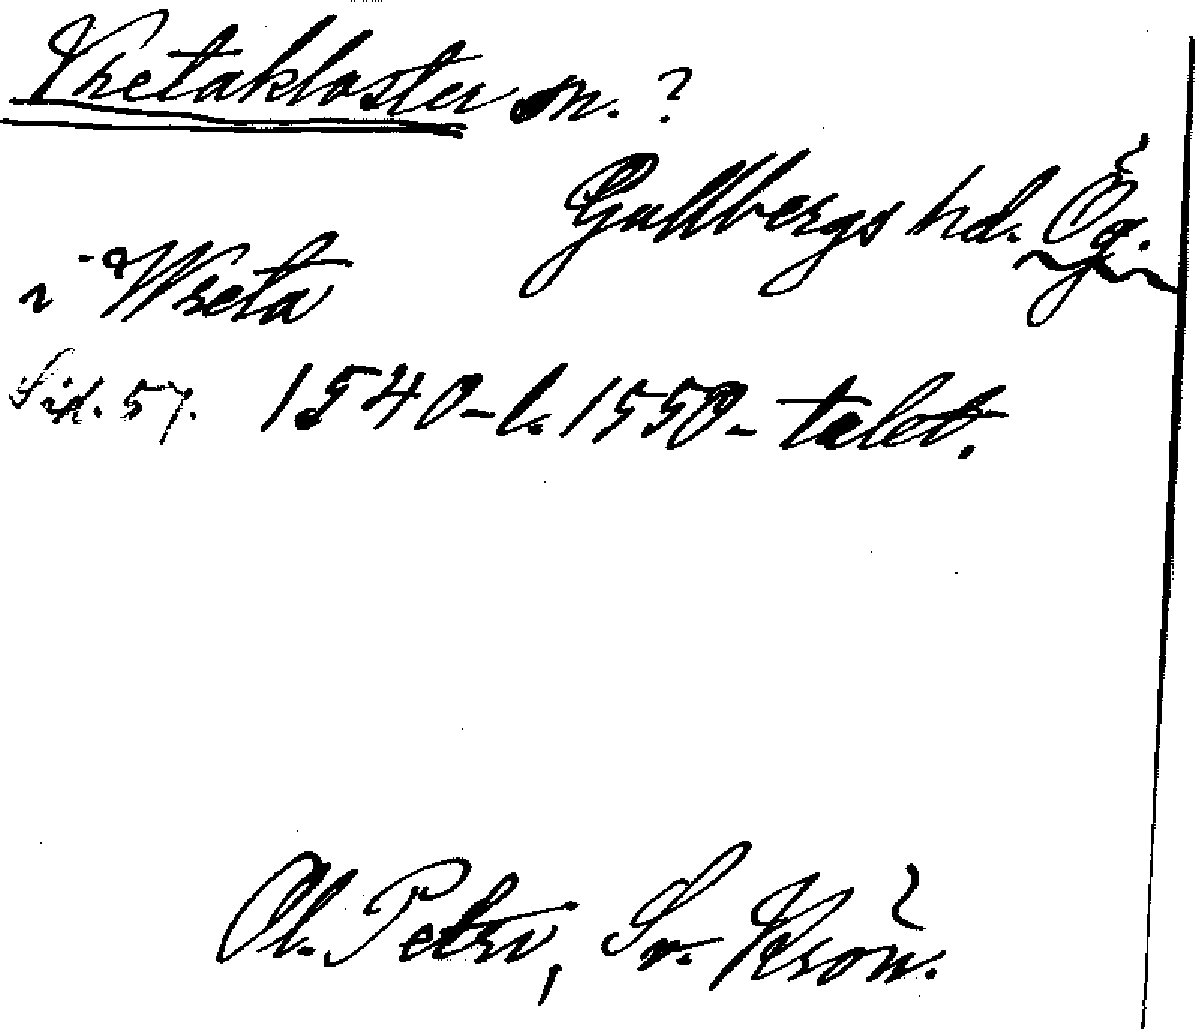 Vretakloster sn. ?
Gullbergs hd. Ög.
i Wreta
Sid. 57. 1540-l. 1550-talet.
Ol. Petri, Sv. Krön.